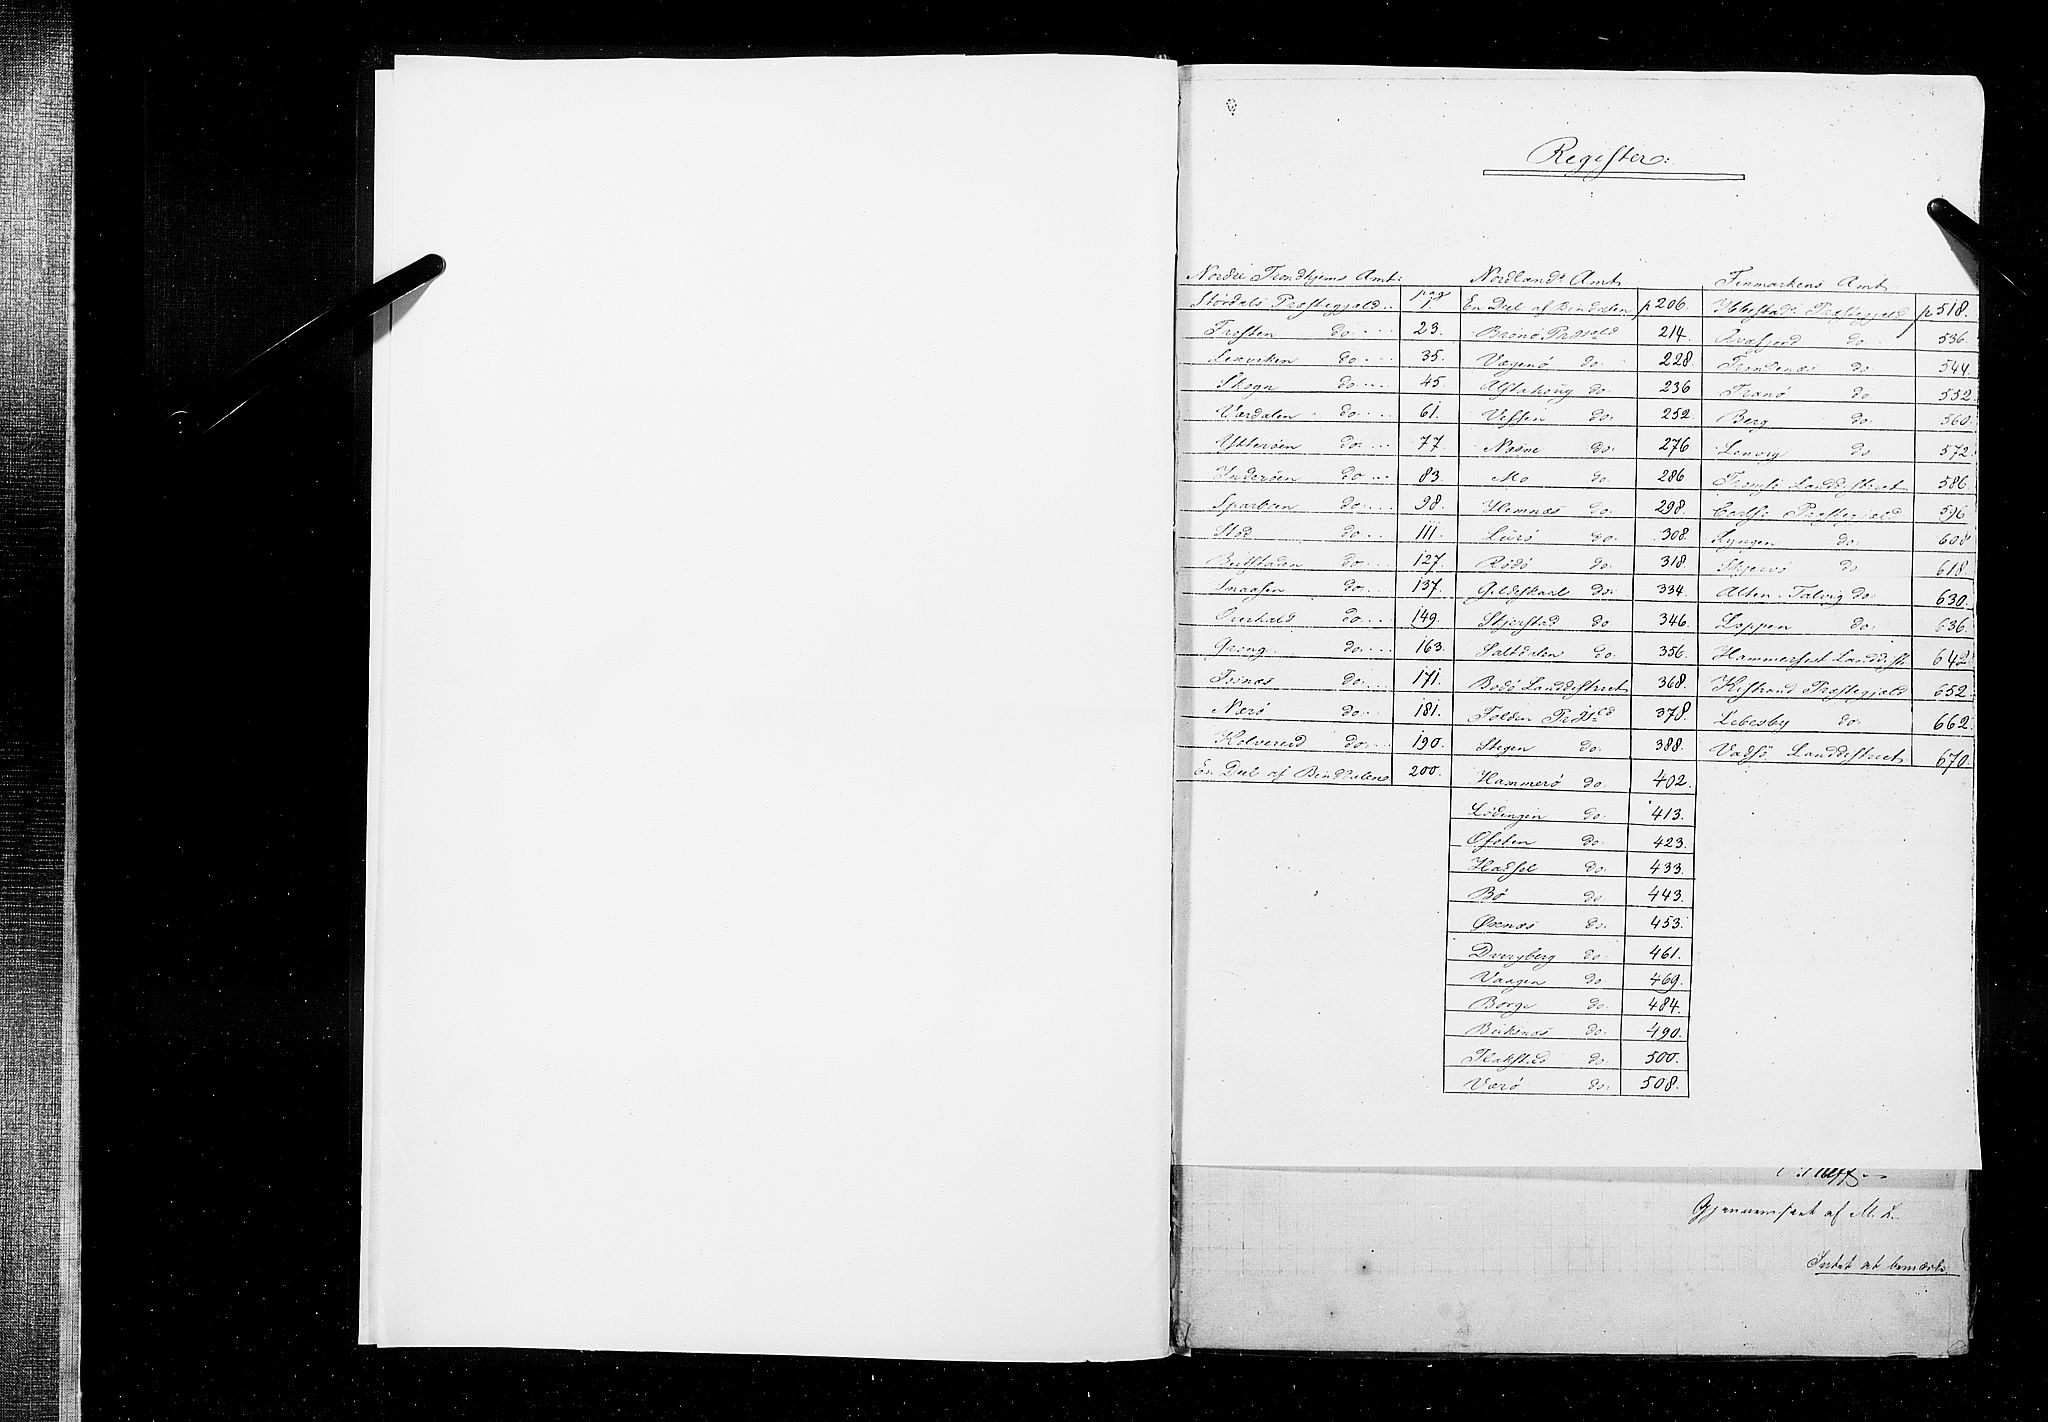 Register:
Nordre Trondhjems Amt:
Stördals Præstegjæld. pag 1
Frosten do 23.
Lexviken do 35.
Skogn do 45.
Værdalen do 61.
Ytterøen do 77.
Inderøen do 83.
Sparboen do 98.
Stod do 111.
Beitstaden do 127.
Snaasen do 137.
Overhald do 149.
Grong do 163.
Fosnæs do 171.
Nærö do 181.
Kolvereid do 190.
En Deel af Binddalen 200.
Nordlands Amt:
En Deel af Bindalen p 206
Brønø Prgjæld 214.
Vægenö do 228
Alstahoug do 236
Vefsen do 252.
Næsne do. 276
Mo do 286
Hemnæs do. 298.
Lurö do. 308.
Rödö do. 318.
Gildeskaal do. 334.
Skjerstad do 346.
Saltdalen do. 356.
Bodö Landdistrict 368.
Folden Prgjeld 378.
Stegen do. 388.
Hammerö do 402.
Lödingen do. 413.
Ofoten do. 423.
Hadsel do. 433.
Bö do 443.
Øxnæs do. 453.
Dverberg do. 461.
Vaagen do 469.
Borge do 484.
Buksnæs do. 490.
Flakstad do 500.
Værö do. 508.
Finmarkens Amt:
Ibbestads Præstegjæld p 518.
Kvæfjord do 536.
Trondenæs do 544.
Tranö do 552.
Berg do. 560.
Lenvig do 572.
Tromsö Landdistrict 586
Carlsö Præstegjæld 596
Lyngen do. 608
Skjervö do 618.
Alten-Talvig do. 630.
Loppen do. 636
Hammerfest Landdist. 642
Kistrand Præstegjæld 652.
Lebesby do. 662
Vadsö Landdistrict 670.
Gjennemseet af M. L.
Intet at bemærke